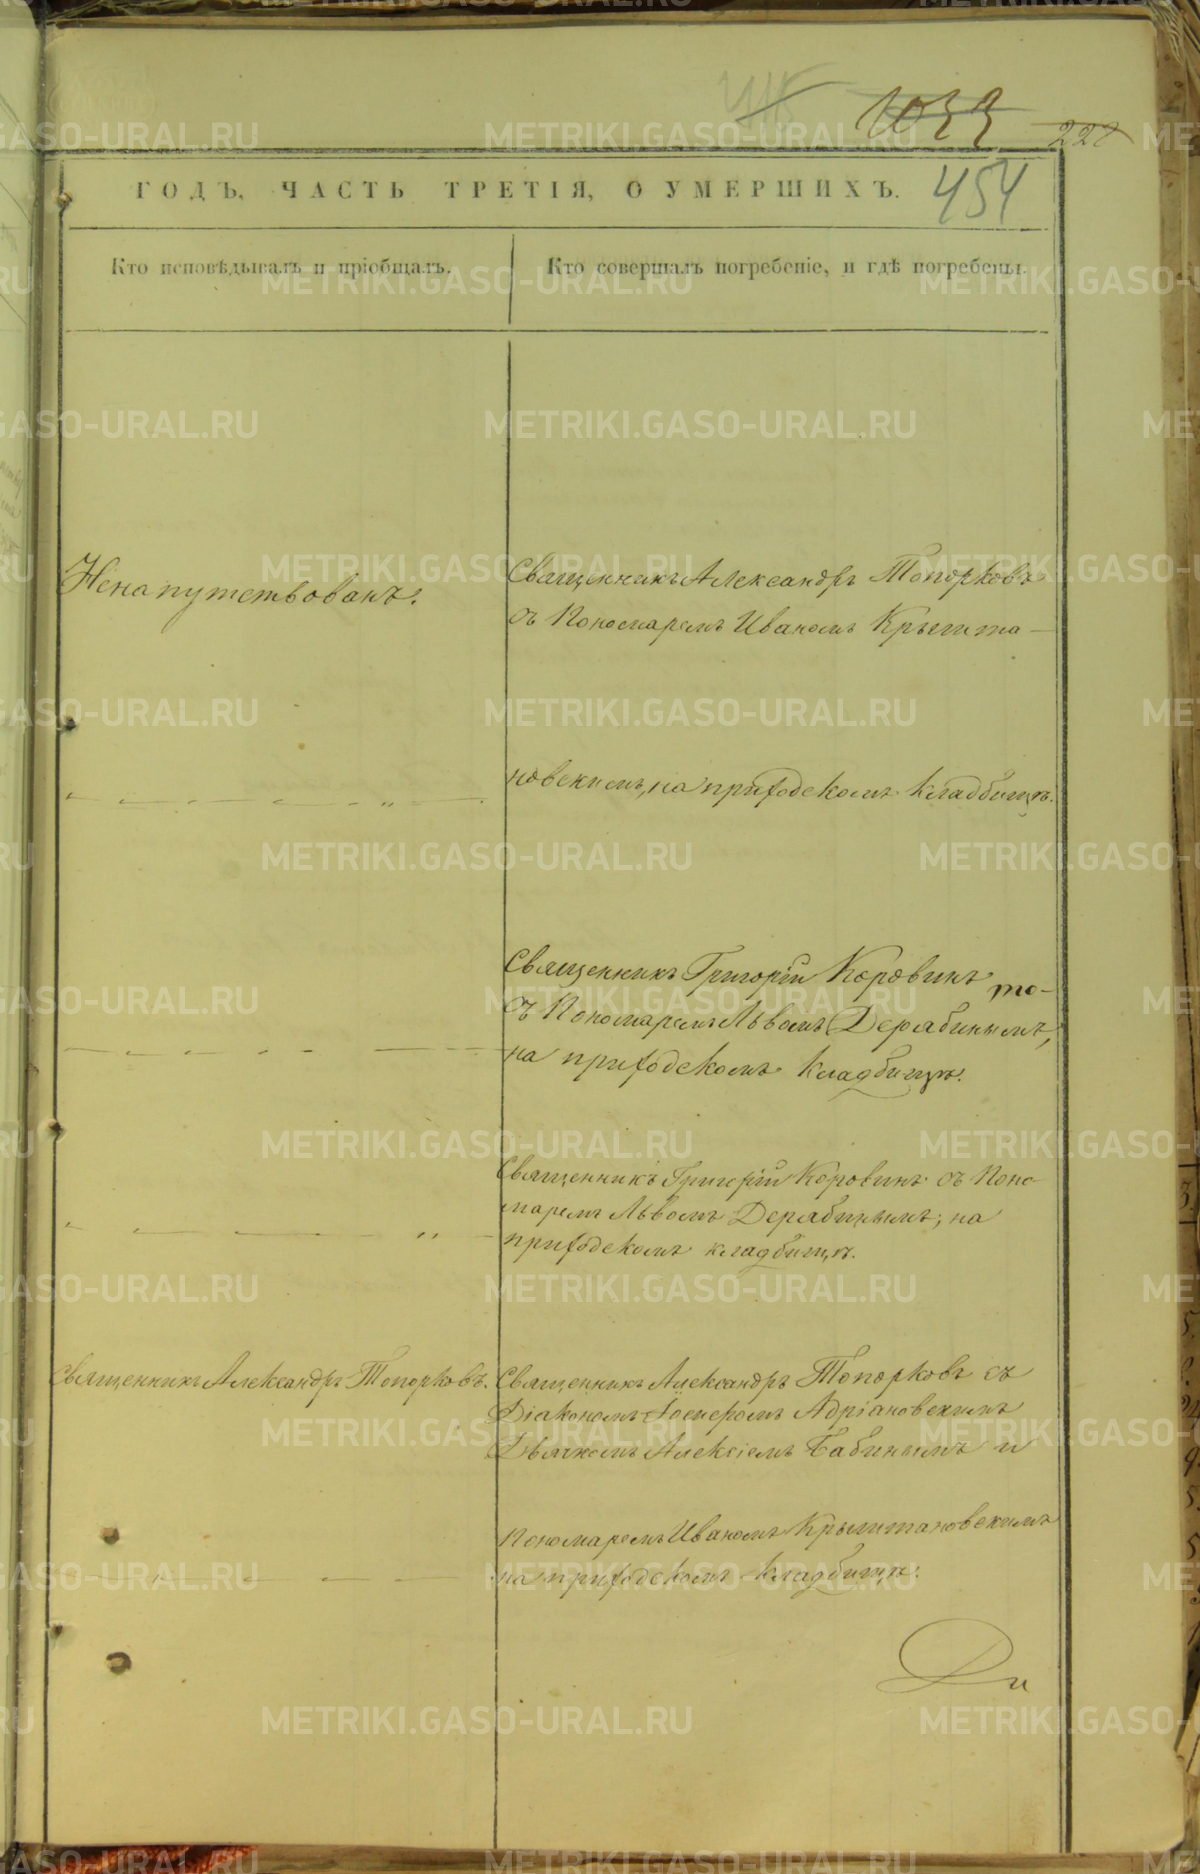 1033
227
454
ГОДЪ, ЧАСТЬ ТРЕТІЯ, О УМЕРШИХЪ.
Кто исповѣдывалъ и пріобщалъ.
Кто совершалъ погребеніе, и гдѣ погребены.
Ненапутствованъ.
Священникъ Александръ Топорковъ
съ Пономаремъ Иваномъ Крыжта-
новскимъ, на приходскомъ кладбищѣ.
Священникъ Григорій Коровинъ то-
съ Пономаремъ Львомъ Дерябинымъ,
на приходскомъ кладбищѣ.
Священникъ Григорій Коровинъ съ Поно-
маремъ Львомъ Дерябинымъ; на
приходскомъ кладбищѣ.
Священникъ Александръ Топорковъ.
Священникъ Александръ Топорковъ съ
Діакономъ Адріановскимъ
Дьячкомъ Алексіемъ Бабинымъ и
Пономаремъ Иваномъ Крыжтановскимъ
на приходскомъ кладбищѣ.
Ди
METRIKI.GASO-URAL.RU